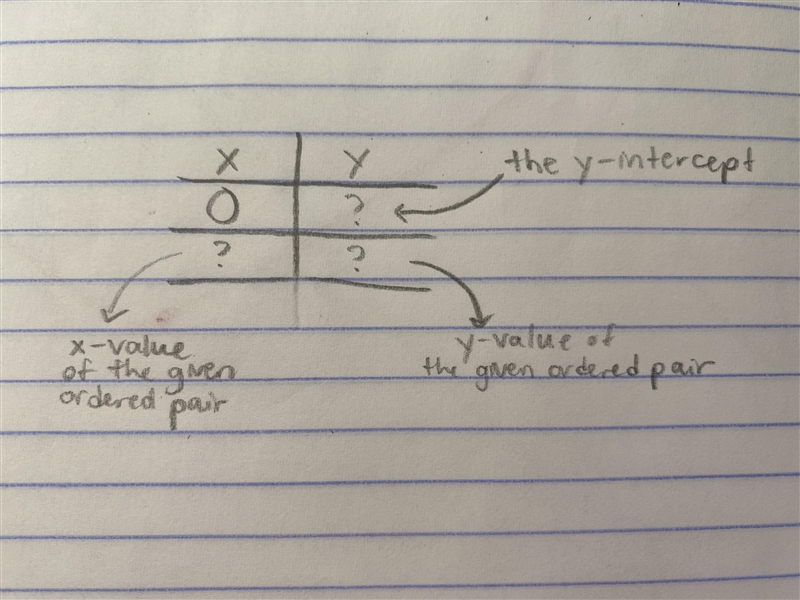 X Y
the y-intercept
0 ?
? ?
x-value
of the given
ordered pair
y-value of
the given ordered pair